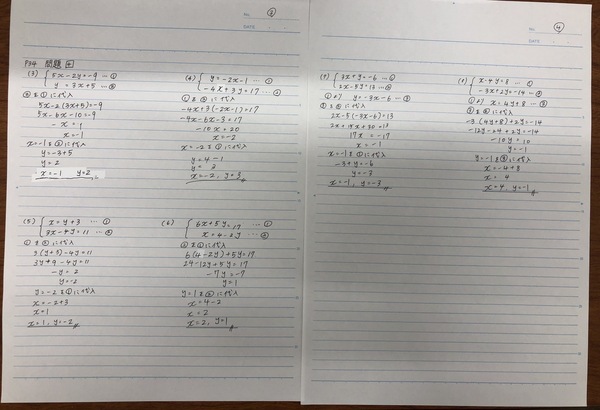 No. ③
DATE
P34 問題 4
(3) { 5x-2y=-9 … ①
y = 3x+5 … ②
②を①に代入
5x-2(3x+5)=-9
5x-6x-10=-9
-x=1
x=-1
x=-1を②に代入
y=-3+5
y=2
x=-1 y=2
(4) { y=-2x-1 … ①
-4x+3y=17 … ②
①を②に代入
-4x+3(-2x-1)=17
-4x-6x-3=17
-10x=20
x=-2
x=-2を①に代入
y=4-1
y=3
x=-2, y=3
(5) { x=y+3 … ①
3x-4y=11 … ②
①を②に代入
3(y+3)-4y=11
3y+9-4y=11
-y=2
y=-2
y=-2を①に代入
x=-2+3
x=1
x=1, y=-2
(6) { 6x+5y=17 … ①
x=4-2y … ②
②を①に代入
6(4-2y)+5y=17
24-12y+5y=17
-7y=-7
y=1
y=1を②に代入
x=4-2
x=2
x=2, y=1
No. ④
DATE
{ 3x+y=-6 … ①
2x-5y=13 … ②
①より y=-3x-6 … ③
③を②に代入
2x-5(-3x-6)=13
2x+15x+30=13
17x=-17
x=-1
x=-1を①に代入
-3+y=-6
y=-3
x=-1, y=-3
{ x-4y=8 … ①
-3x+2y=-14 … ②
①より x=4y+8 … ③
③を②に代入
-3(4y+8)+2y=-14
-12y-24+2y=-14
-10y=10
y=-1
y=-1を③に代入
x=-4+8
x=4
x=4, y=-1